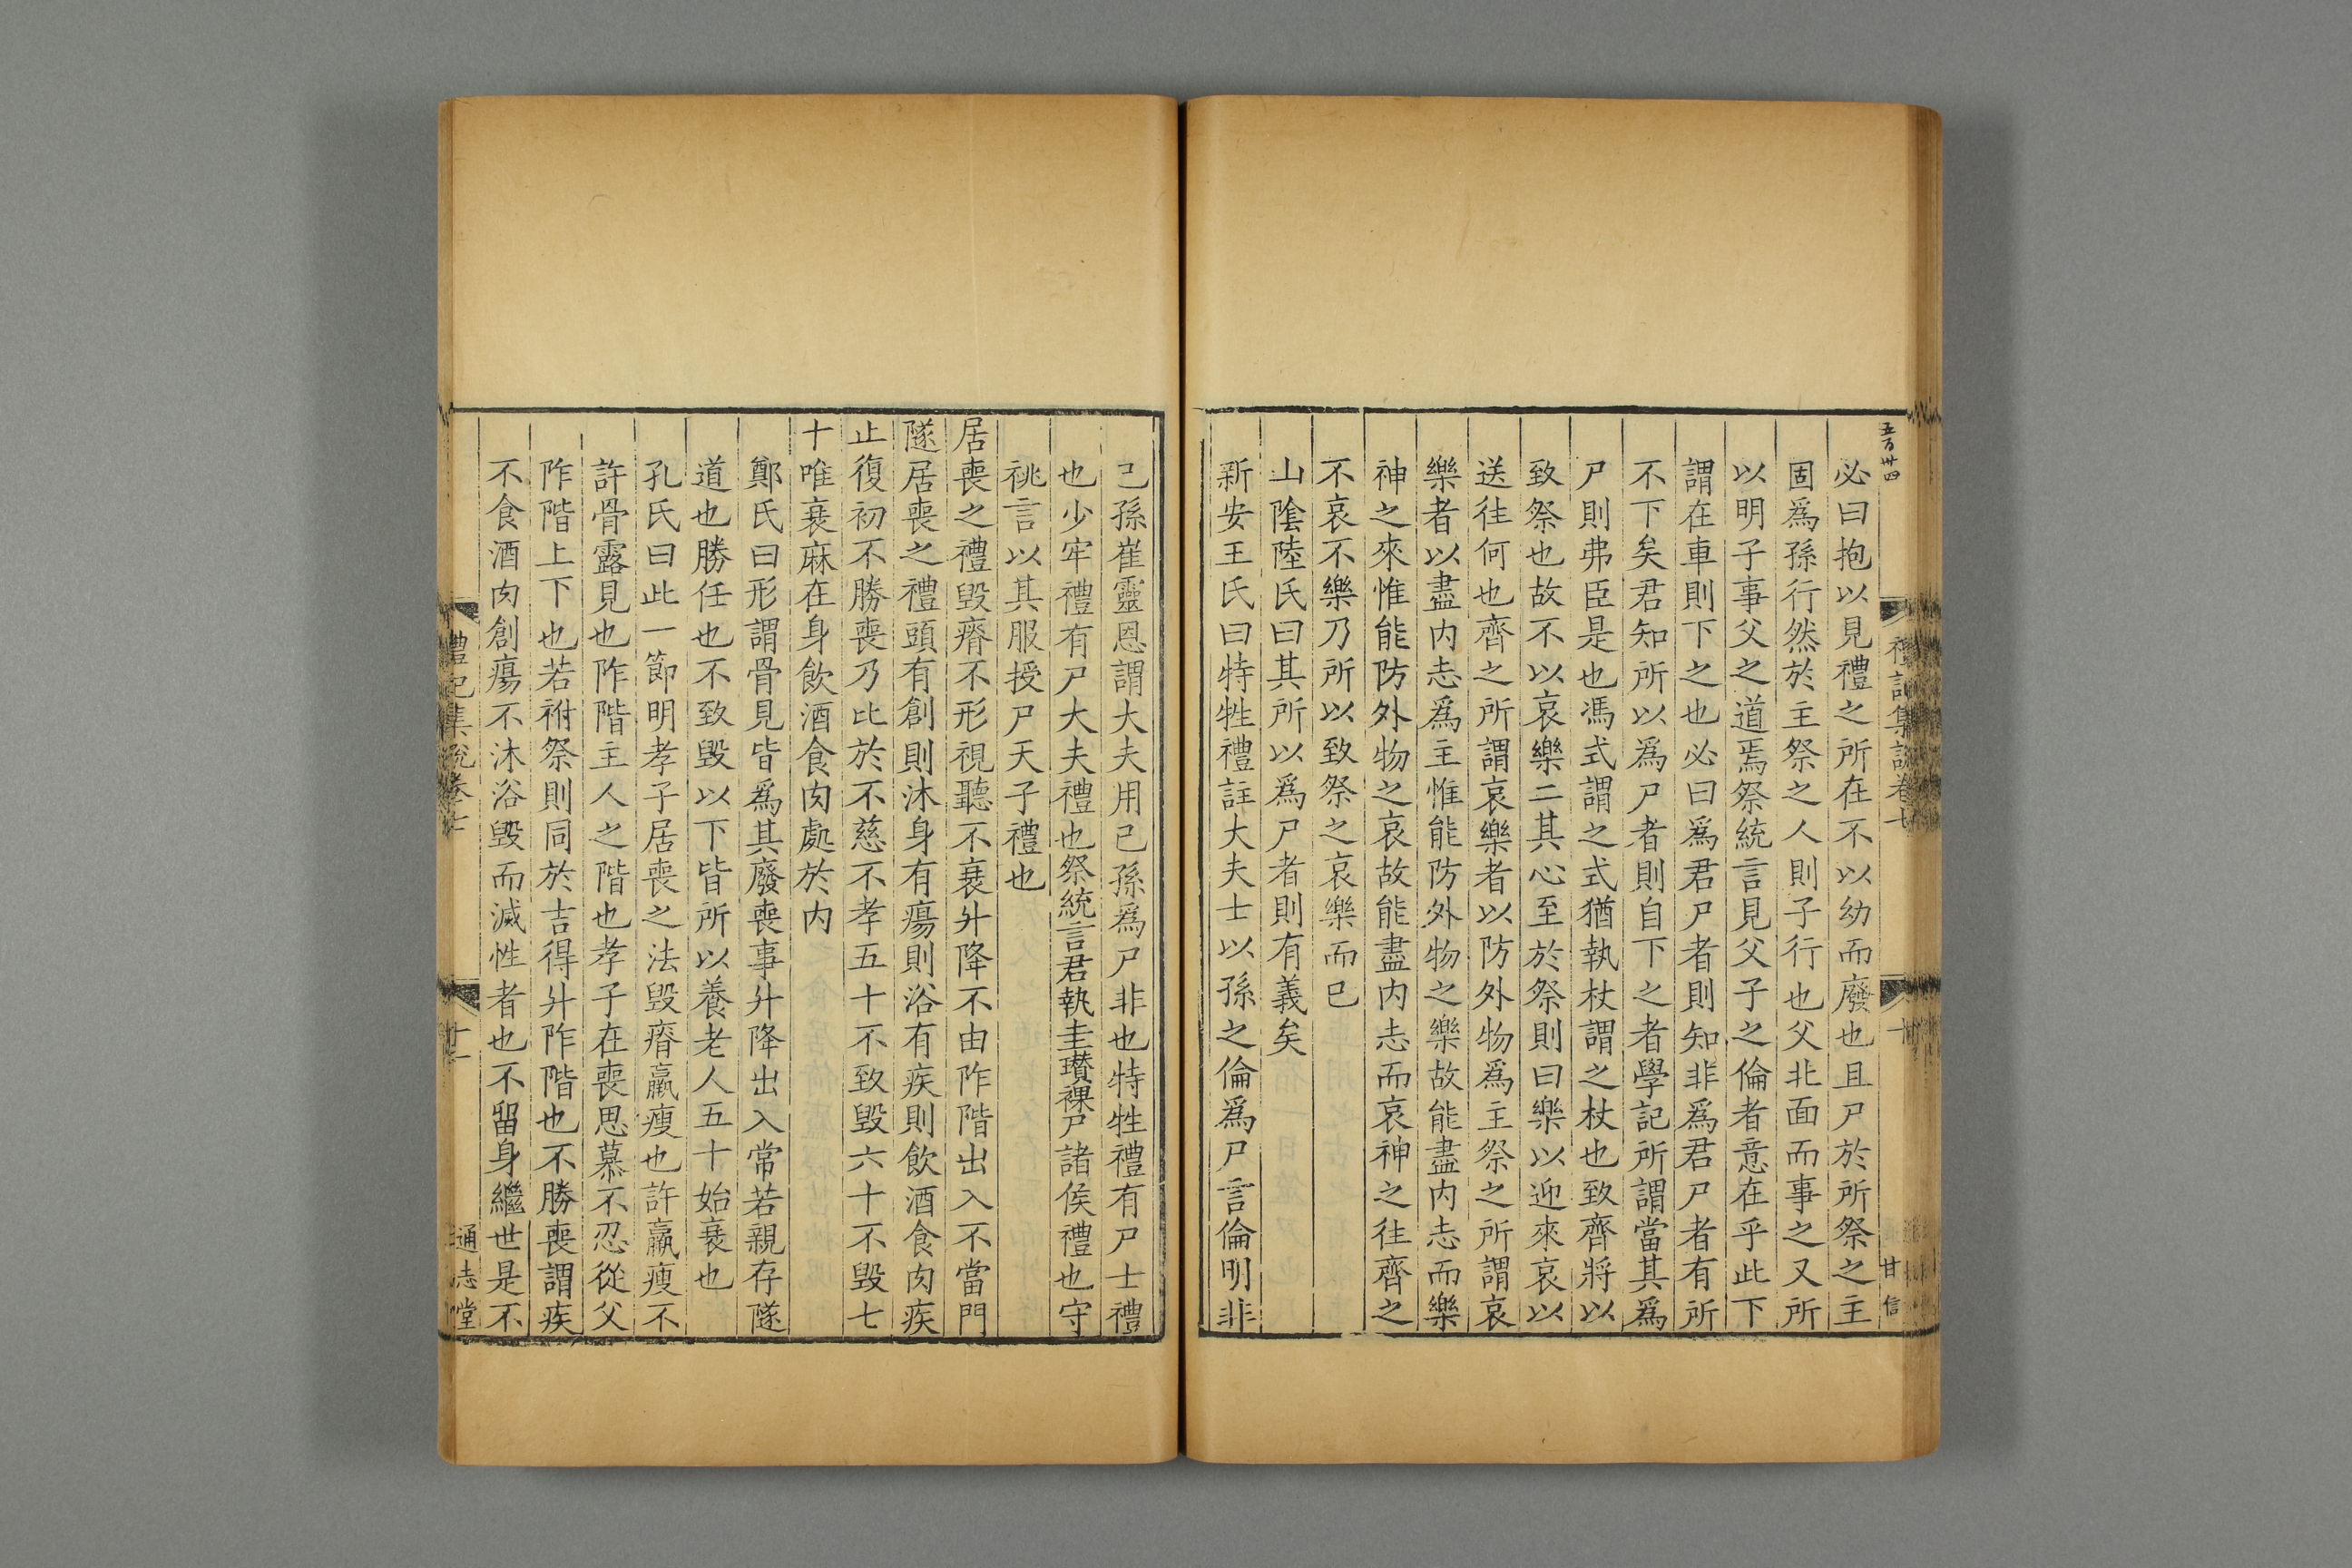 五百卅四
禮記集說卷七
十
甘信
必曰抱以見禮之所在不以幼而廢也且尸於所祭之主
固爲孫行然於主祭之人則子行也父北面而事之又所
以明子事父之道焉祭統言見父子之倫者意在乎此下
謂在車則下之也必曰爲君尸者則知非爲君尸者有所
不下矣君知所以爲尸者則自下之者學記所謂當其爲
尸則弗臣是也馮式謂之式猶執杖謂之杖也致齊將以
致祭也故不以哀樂二其心至於祭則曰樂以迎來哀以
送往何也齊之所謂哀樂者以防外物爲主祭之所謂哀
樂者以盡内志爲主惟能防外物之樂故能盡内志而樂
神之來惟能防外物之哀故能盡内志而哀神之往齊之
不哀不樂乃所以致祭之哀樂而已
山陰陸氏曰其所以爲尸者則有義矣
新安王氏曰特牲禮註大夫士以孫之倫爲尸言倫明非
己孫崔靈恩謂大夫用己孫爲尸非也特牲禮有尸士禮
也少牢禮有尸大夫禮也祭統言君執圭瓚祼尸諸侯禮也守
祧言以其服授尸天子禮也
居喪之禮毁瘠不形視聽不衰升降不由阼階出入不當門
隧居喪之禮頭有創則沐身有瘍則浴有疾則飲酒食肉疾
止復初不勝喪乃比於不慈不孝五十不致毁六十不毁七
十唯衰麻在身飲酒食肉處於内
鄭氏曰形謂骨見皆爲其廢喪事升降出入常若親存隧
道也勝任也不致毁以下皆所以養老人五十始衰也
孔氏曰此一節明孝子居喪之法毁瘠羸瘦也許羸瘦不
許骨露見也阼階主人之階也孝子在喪思慕不忍從父
阼階上下也若祔祭則同於吉得升阼階也不勝喪謂疾
不食酒肉創瘍不沐浴毁而滅性者也不留身繼世是不
禮記集說卷七
十一
通志堂